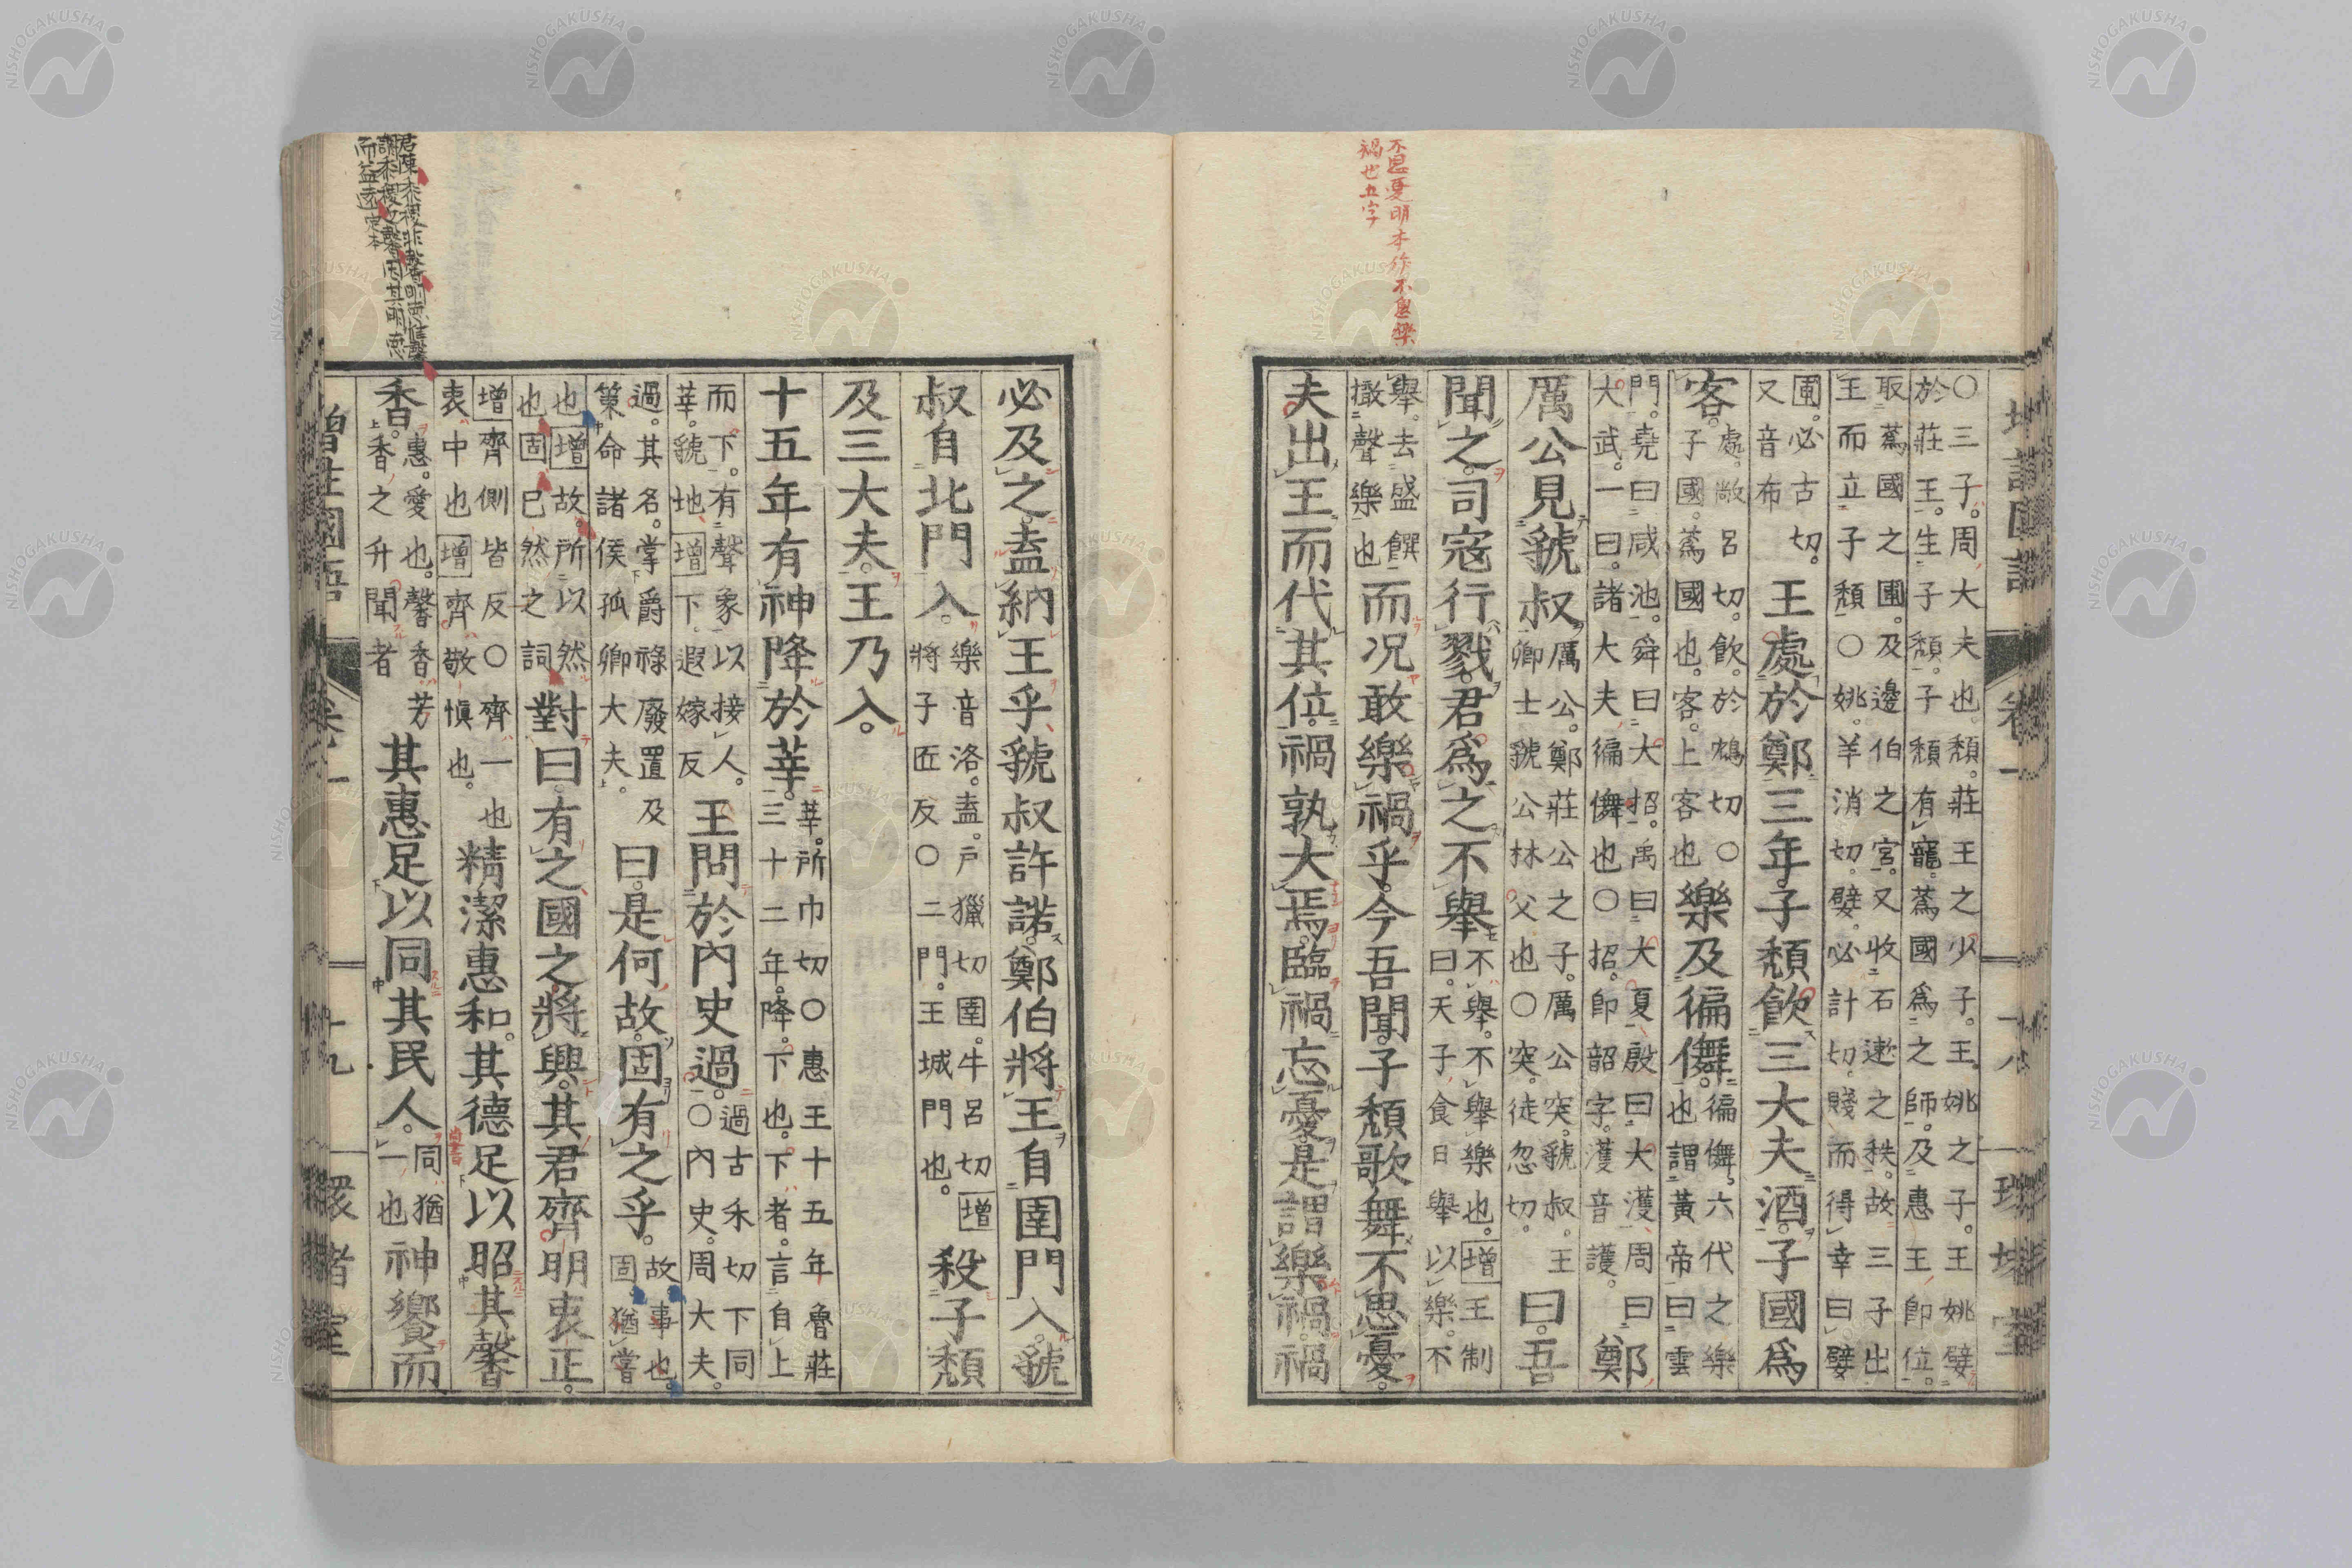 不思憂明本作不思樂
禍也五字
増註國語 卷一 十八 環堵室
○三子。周大夫也。頽。莊王之少子。王姚之子。王姚嬖
於莊王。生子頽。子頽有寵。蔿國爲之師。及惠王即位。
取蔿國之圃。及邊伯之宮。又收石遬之秩。故三子出
王而立子頽○姚。羊消切。嬖。必計切。賤而得幸曰嬖
圃。必古切。
又音布
王處於鄭三年。子頽飮三大夫酒。子國爲
客。
處。敞呂切。飮。於鴆切○
子國。蔿國也。客。上客也
樂及徧儛。
徧儛。六代之樂
也。謂黃帝曰雲
門。堯曰咸池。舜曰大招。禹曰大夏。殷曰大濩。周曰
大武。一曰。諸大夫徧儛也○招。卽韶字。濩音護。
鄭
厲公見虢叔。
厲公。鄭莊公之子。厲公突。虢叔。王
卿士虢公林父也○突。徒忽切。
曰。吾
聞之。司寇行戮。君爲之不舉。
不舉。不舉樂也。增王制
曰。天子食日舉以樂。不
舉。去盛饌
撤聲樂也
而况敢樂禍乎。今吾聞。子頽歌舞不思憂。
夫出王而代其位。禍孰大焉。臨禍忘憂。是謂樂禍。禍
必及之。盍納王乎。虢叔許諾。鄭伯將王自圉門入。虢
叔自北門入。
樂音洛。盍。戶獵切圉。牛呂切增
將子匠反○二門。王城門也。
殺子頽
及三大夫。王乃入。
十五年。有神降於莘。
莘。所巾切○惠王十五年。魯莊
三十二年。降。下也。下者。言自上
而下。有聲象以接人。
莘。虢地增下。遐嫁反
王問於内史過。
過古禾切下同
○内史。周大夫。
過。其名。掌爵祿廢置及
策命諸侯孤卿大夫。
曰。是何故。固有之乎。
故。事也。
固。猶嘗
也增故。所以然
也固已然之詞
對曰。有之。國之將興。其君齊明衷正。
增齊側皆反○齊。一也
衷。中也增齊。敬愼也。
精潔惠和。其德足以昭其馨
香。
惠。愛也。馨香。芳
香之升聞者
其惠足以同其民人。
同。猶
一也
神饗而
增註國語 卷一 十九 環堵室
君陳黍稷非馨明德惟馨
謂黍稷之馨因其明德
而益遠 定本
NISHOGAKUSHA